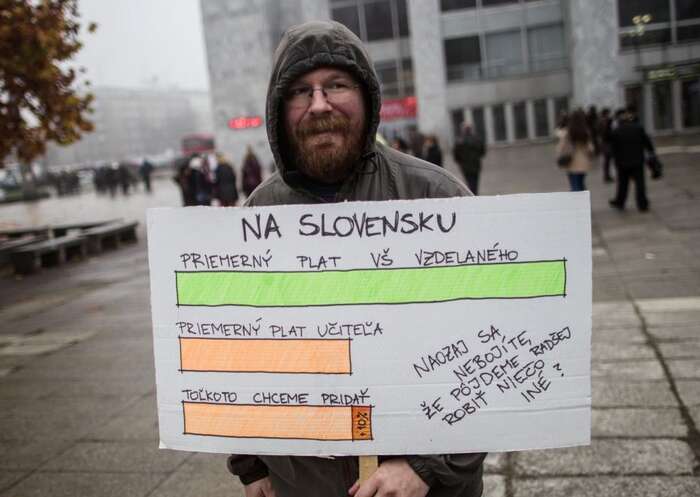 NA SLOVENSKU
PRIEMERNÝ PLAT VŠ VZDELANÉHO
PRIEMERNÝ PLAT UČITEĽA
TOĽKOTO CHCEME PRIDAŤ
+10%
NAOZAJ SA
NEBOJÍTE,
ŽE PÔJDEME RADŠEJ
ROBIŤ NIEČO
INÉ?